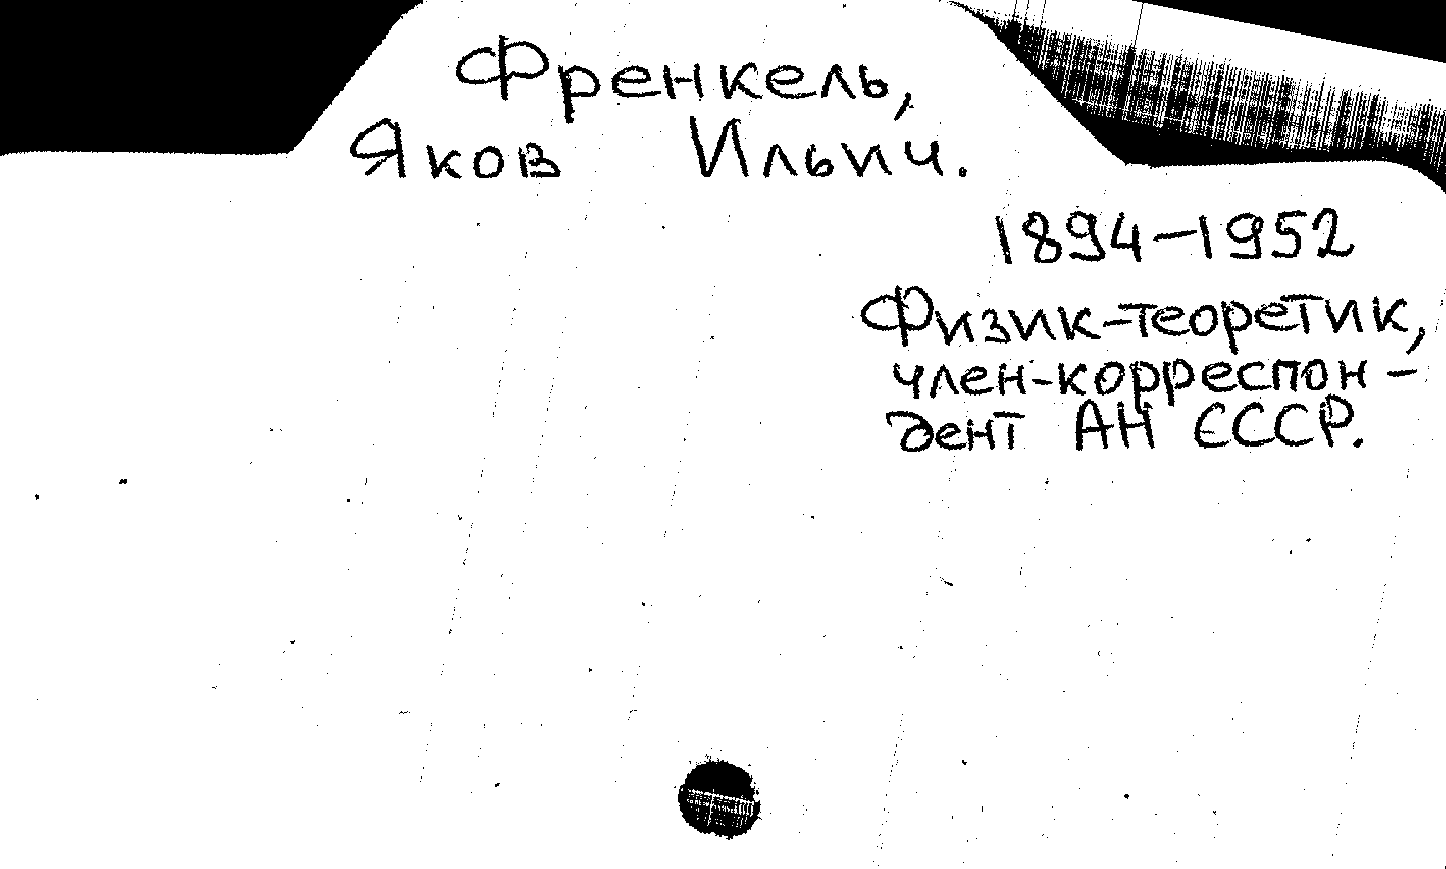 Френкель,
Яков Ильич.
1894-1952
Физик-теоретик,
член-корреспон-
дент АН СССР.